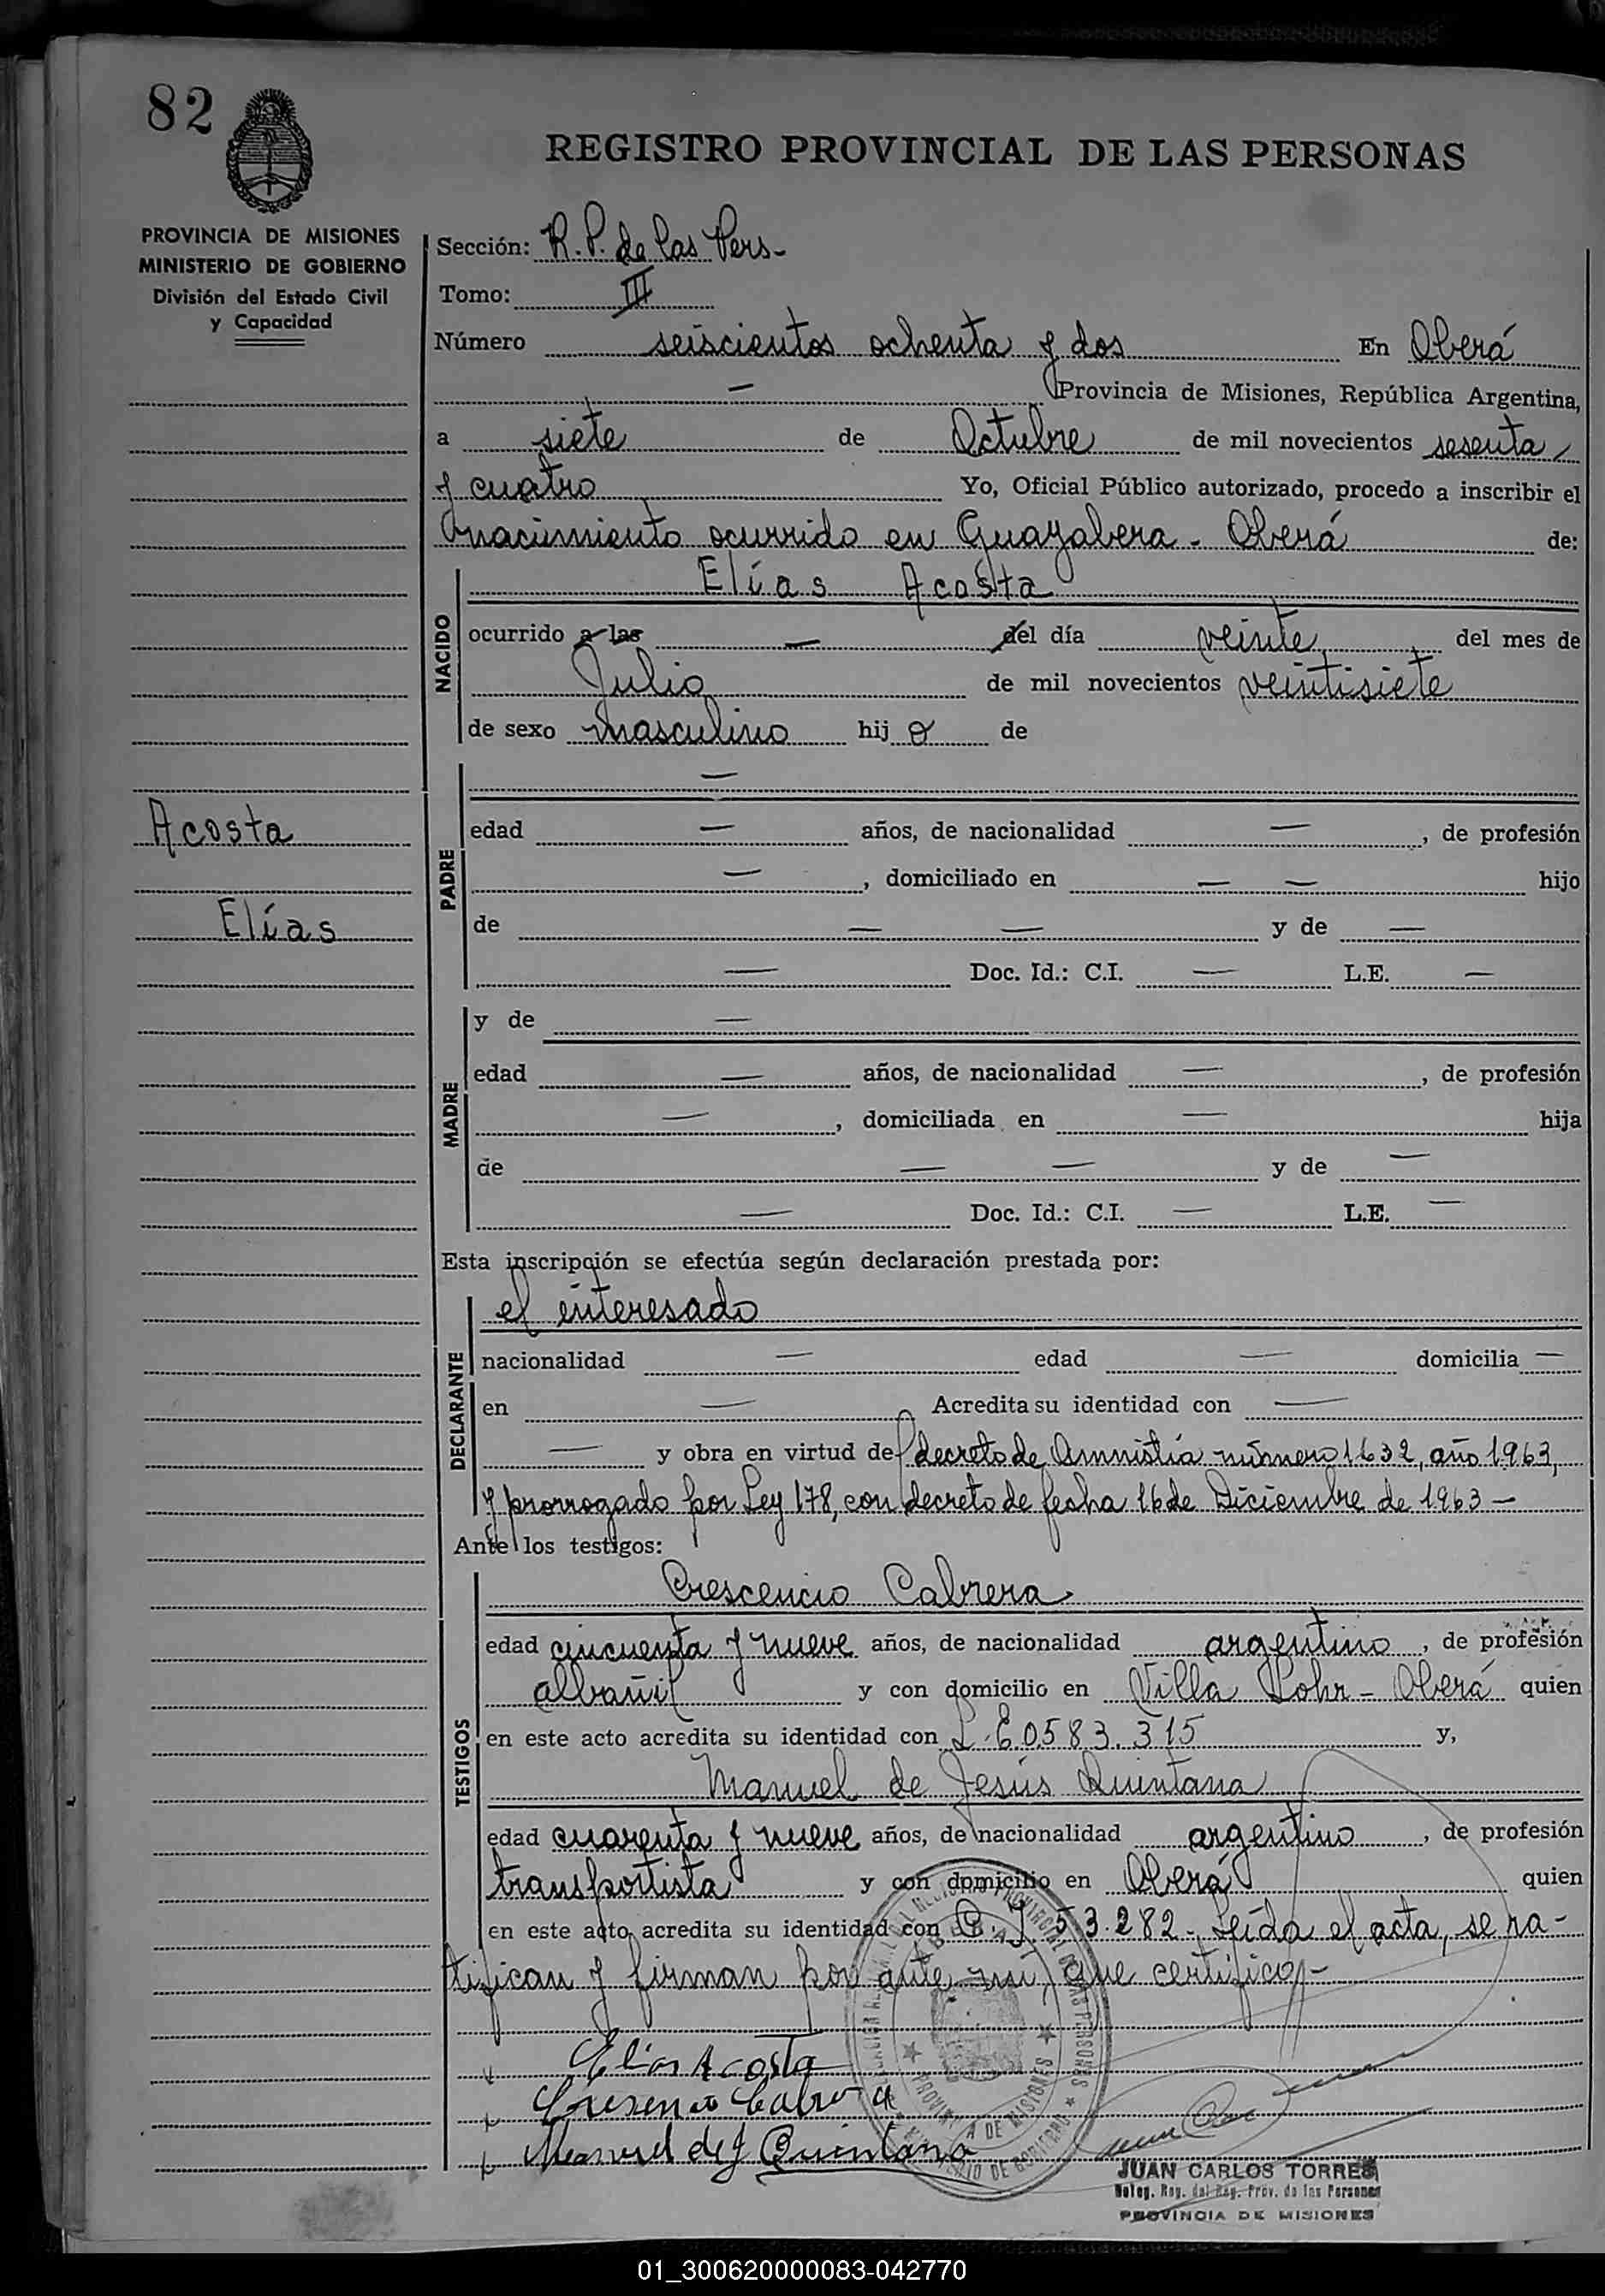 82
REGISTRO PROVINCIAL DE LAS PERSONAS
PROVINCIA DE MISIONES
MINISTERIO DE GOBIERNO
División del Estado Civil
y Capacidad
Sección: R. P. de las Pers-
Tomo: III
Número seiscientos ochenta y dos En Oberá
— Provincia de Misiones, República Argentina,
a siete de Octubre de mil novecientos sesenta
y cuatro Yo, Oficial Público autorizado, procedo a inscribir el
nacimiento ocurrido en Guayabera - Oberá de:
NACIDO
Elías Acosta
ocurrido a las — del día veinte del mes de
Julio de mil novecientos veintisiete
de sexo masculino hijo de
PADRE
—
edad — años, de nacionalidad — , de profesión
— , domiciliado en — — hijo
de — — y de —
— Doc. Id.: C.I. — L.E. —
Acosta
Elías
MADRE
y de —
edad — años, de nacionalidad — , de profesión
— , domiciliada en — hija
de — — y de —
— Doc. Id.: C.I. — L.E. —
Esta inscripción se efectúa según declaración prestada por:
DECLARANTE
el interesado
nacionalidad — edad — domicilia —
en — Acredita su identidad con —
— y obra en virtud de decreto de Amnistía número 1632, año 1963,
y prorrogado por Ley 178, con decreto de fecha 16 de Diciembre de 1963 —
Ante los testigos:
TESTIGOS
Crescencio Cabrera
edad cincuenta y nueve años, de nacionalidad argentino , de profesión
albañil y con domicilio en Villa Lohr - Oberá quien
en este acto acredita su identidad con L.E 0.583.315 y,
Manuel de Jesús Quintana
edad cuarenta y nueve años, de nacionalidad argentino , de profesión
transportista y con domicilio en Oberá quien
en este acto acredita su identidad con C.I. 53.282 - Leída el acta, se ra-
tifican y firman por ante mi, que certifico -
Elías Acosta
Cresencio Cabrera
Manuel de J Quintana
PROVINCIA DE MISIONES
JUAN CARLOS TORRES
Deleg. Reg. del Reg. Prov. de las Personas
PROVINCIA DE MISIONES
01_300620000083-042770